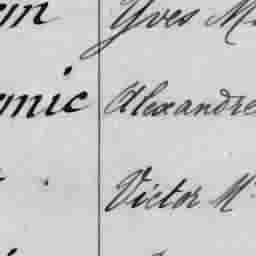 Yves M
mic Alexandre
Victor M